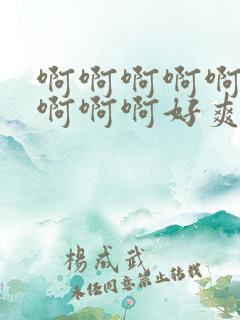 啊啊啊啊啊
啊啊啊好爽
杨成武
未经同意禁止转载